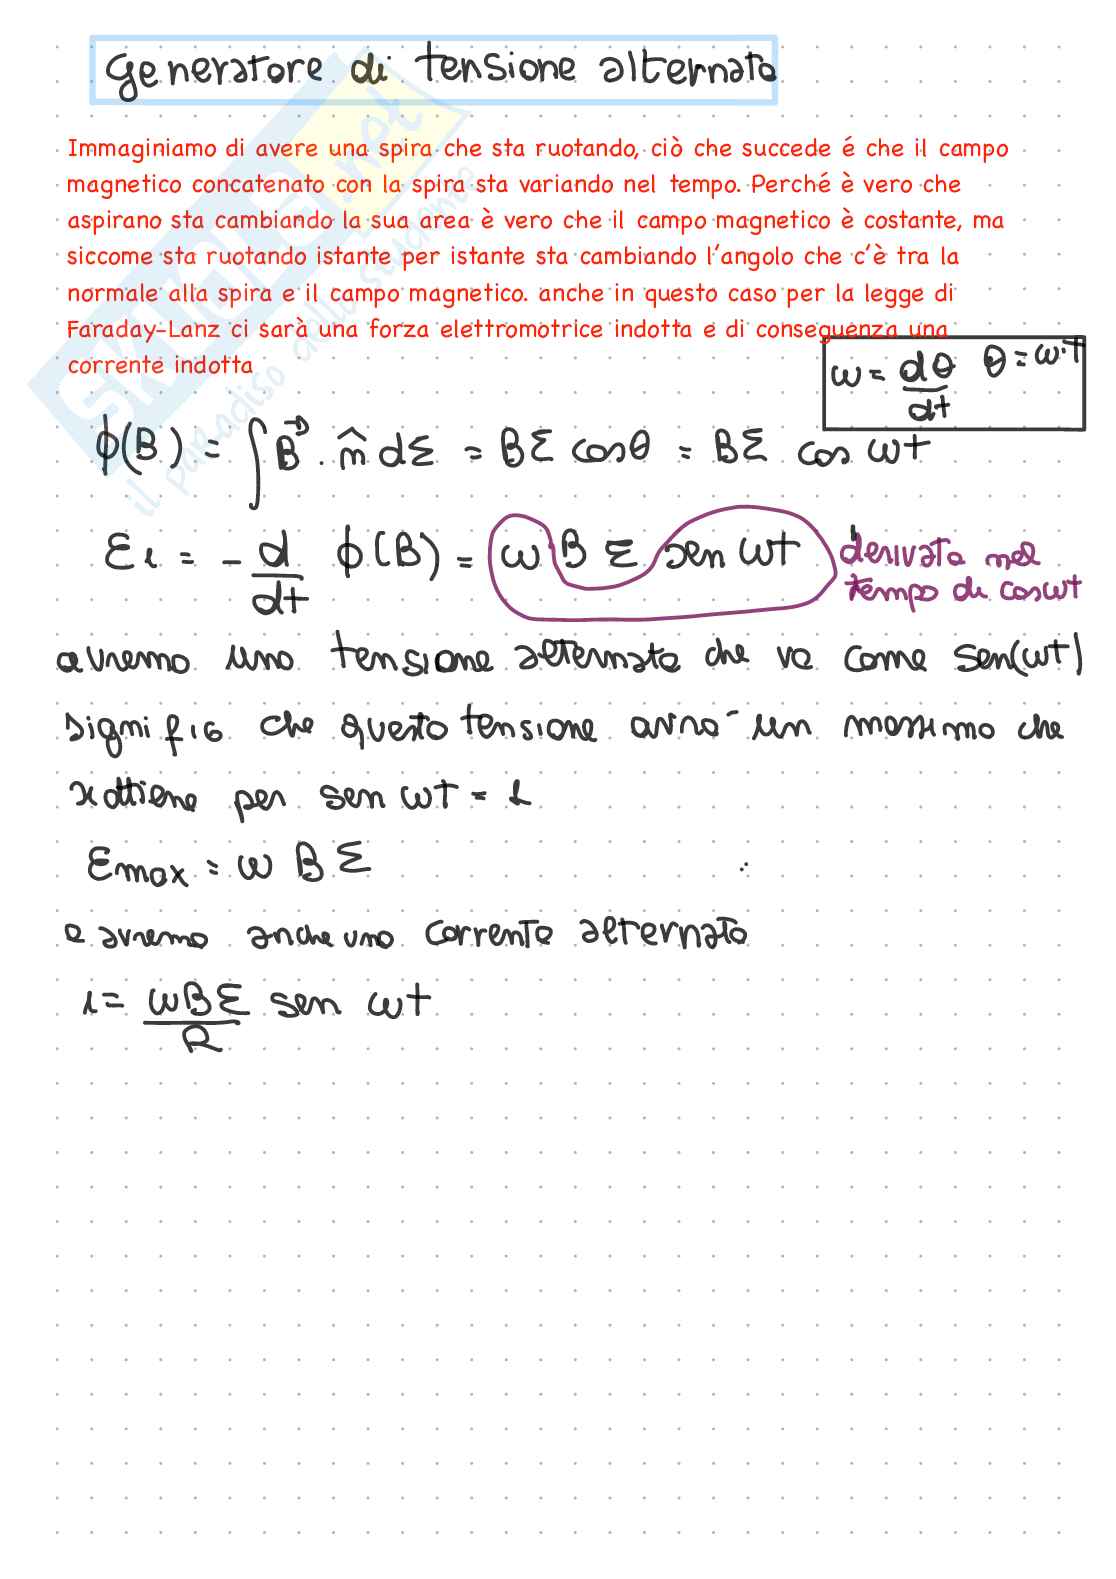 Generatore di tensione alternata
Immaginiamo di avere una spira che sta ruotando, ciò che succede é che il campo
magnetico concatenato con la spira sta variando nel tempo. Perché è vero che
aspirano sta cambiando la sua area è vero che il campo magnetico è costante, ma
siccome sta ruotando istante per istante sta cambiando l'angolo che c'è tra la
normale alla spira e il campo magnetico. anche in questo caso per la legge di
Faraday-Lanz ci sarà una forza elettromotrice indotta e di conseguenza una
corrente indotta
ω = dθ/dt θ = ω·t
ϕ(B) = ∫ B⃗ · n̂ dΣ = BΣ cosθ = BΣ cos ωt
Ɛi = - d/dt ϕ(B) = ω B Σ sen ωt
derivata nel
tempo di cosωt
avremo una tensione alternata che va come sen(ωt)
signifia che questa tensione avra- un massimo che
si ottiene per sen ωt = 1
Ɛmax = ω B Σ
e avremo anche una corrente alternata
i = ωBΣ/R sen ωt
skuola.net
il paradiso dello studente